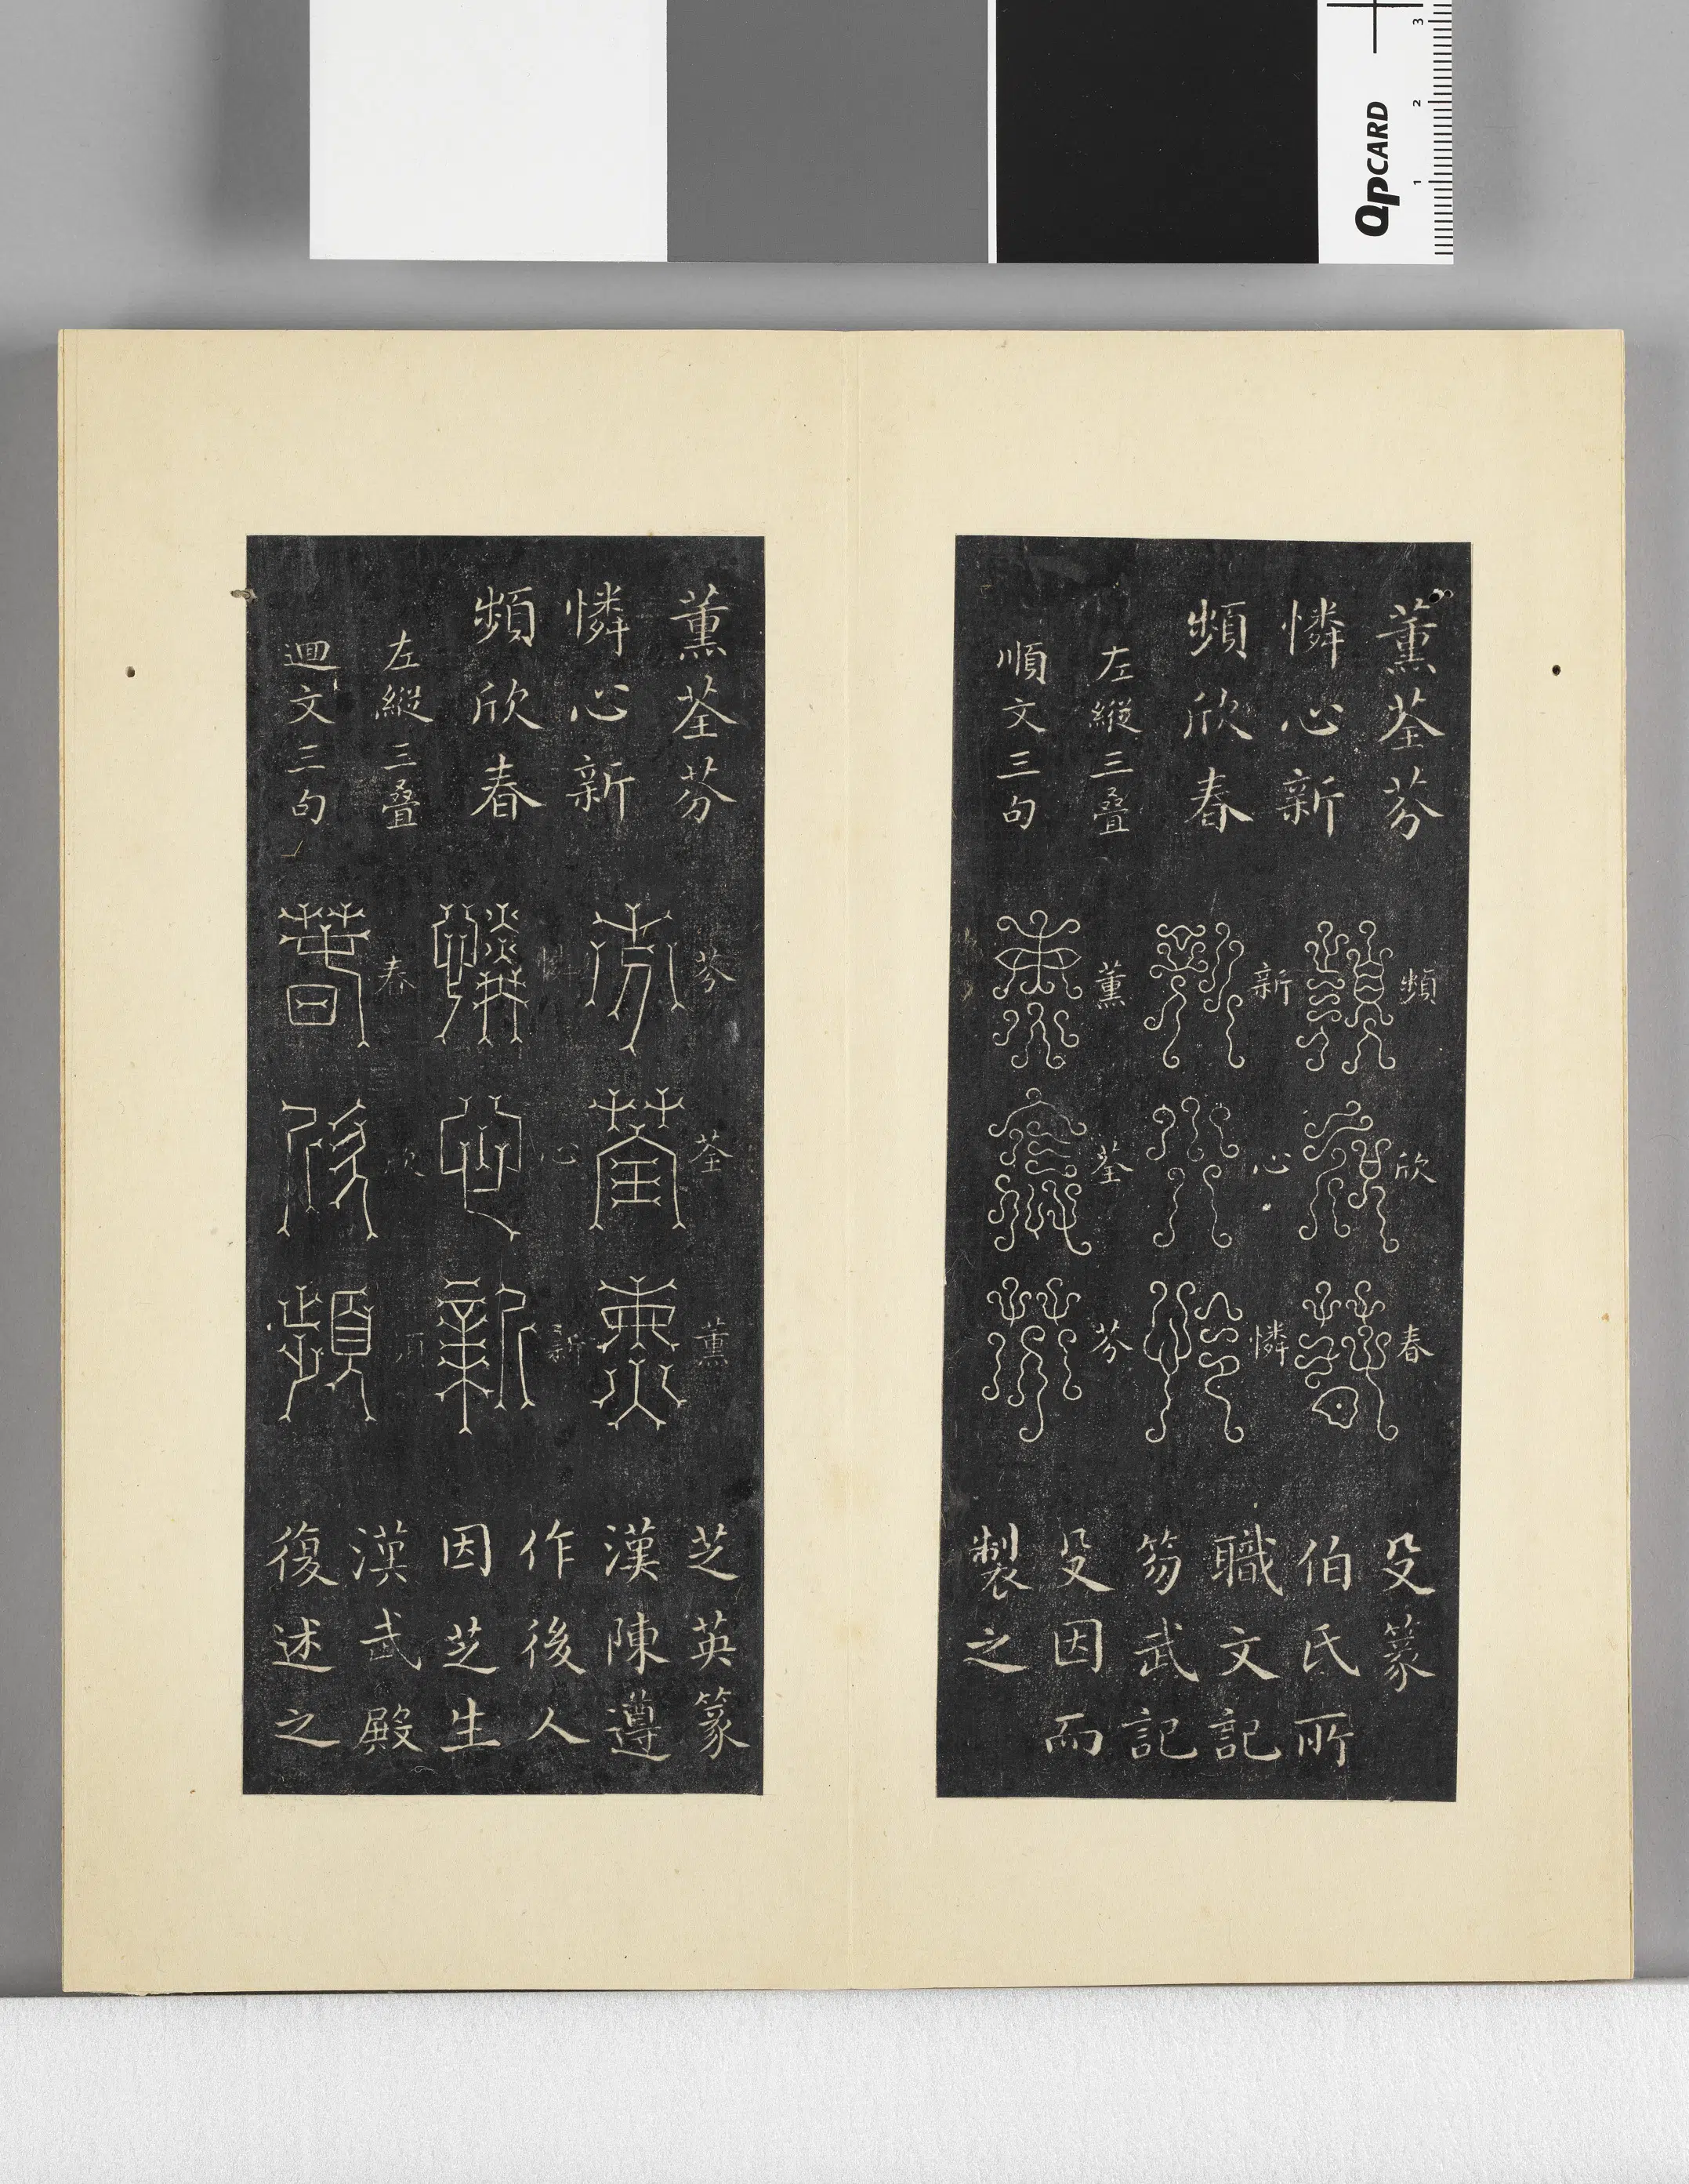 QPCARD
1 2 3
薰荃芬
憐心新
頻欣春
左縱三叠
順文三句
頻欣春
新心憐
薰荃芬
殳篆
伯氏所
職文記
笏武記
殳因而
製之
薰荃芬
憐心新
頻欣春
左縱三叠
迴文三句
芬荃薰
憐心新
春欣頻
芝英篆
漢陳遵
作後人
因芝生
漢武殿
復述之